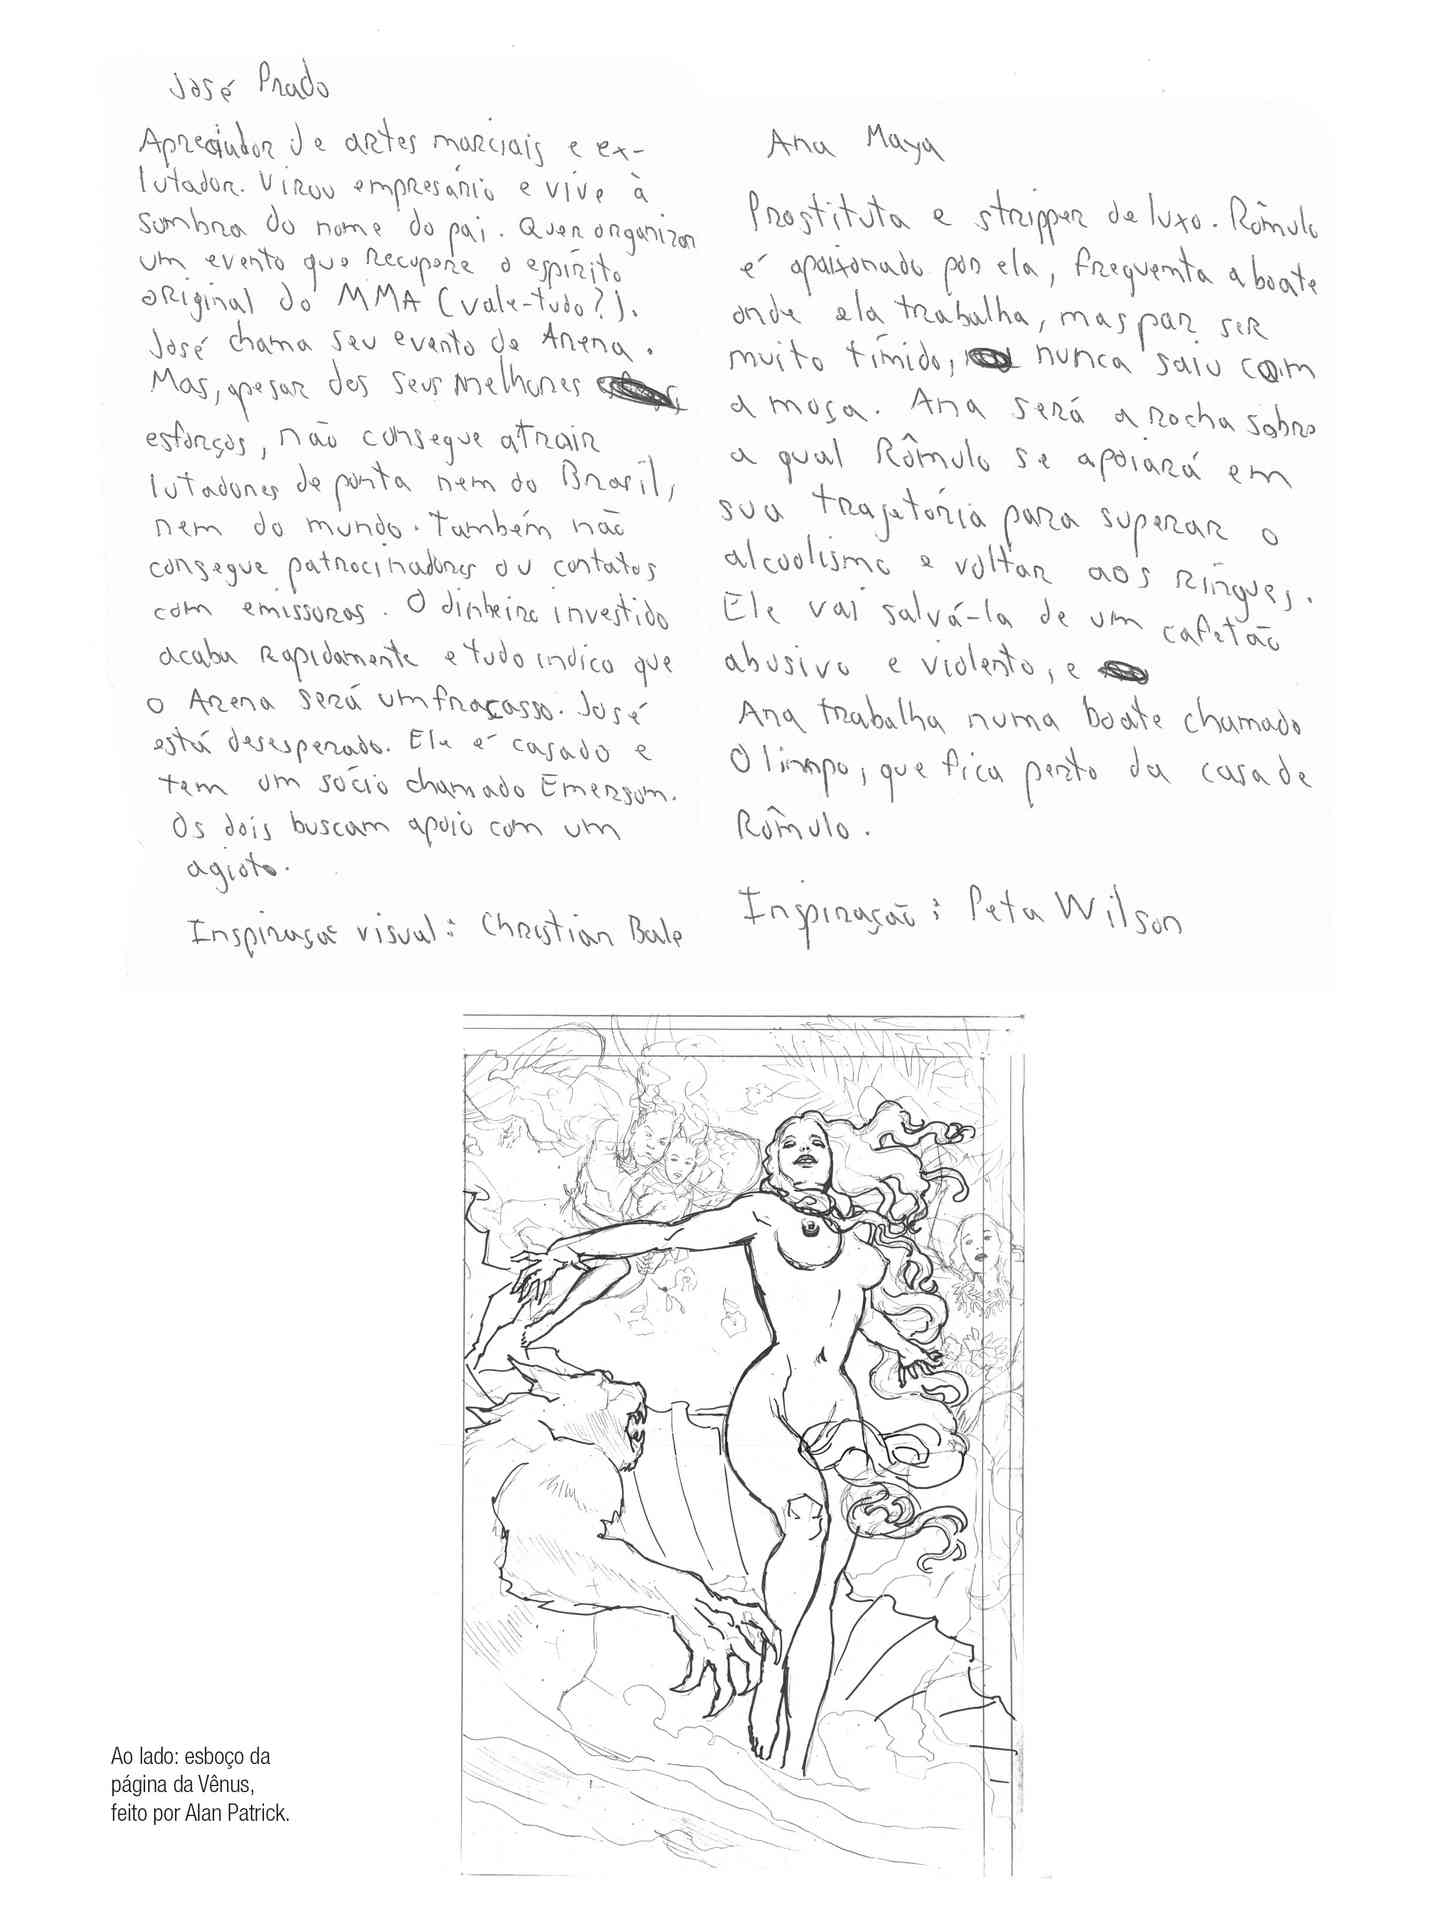 José Prado
Apreciador de artes marciais e ex-
lutador. Virou empresário e vive à
sombra do nome do pai. Quer organizar
um evento que recupere o espírito
original do MMA (vale-tudo?).
José chama seu evento de Arena.
Mas, apesar dos seus melhores
esforços, não consegue atrair
lutadores de ponta nem do Brasil,
nem do mundo. Também não
consegue patrocinadores ou contatos
com emissoras. O dinheiro investido
acaba rapidamente e tudo indica que
o Arena será um fracasso. José
está desesperado. Ele é casado e
tem um sócio chamado Emerson.
Os dois buscam apoio com um
agiota.
Inspiração visual: Christian Bale
Ana Maya
Prostituta e stripper de luxo. Rômulo
é apaixonado por ela, frequenta a boate
onde ela trabalha, mas por ser
muito tímido, nunca saiu com
a moça. Ana será a rocha sobre
a qual Rômulo se apoiará em
sua trajetória para superar o
alcoolismo e voltar aos ringues.
Ele vai salvá-la de um cafetão
abusivo e violento, e
Ana trabalha numa boate chamada
Olimpo, que fica perto da casa de
Rômulo.
Inspiração: Peta Wilson
Ao lado: esboço da
página da Vênus,
feito por Alan Patrick.